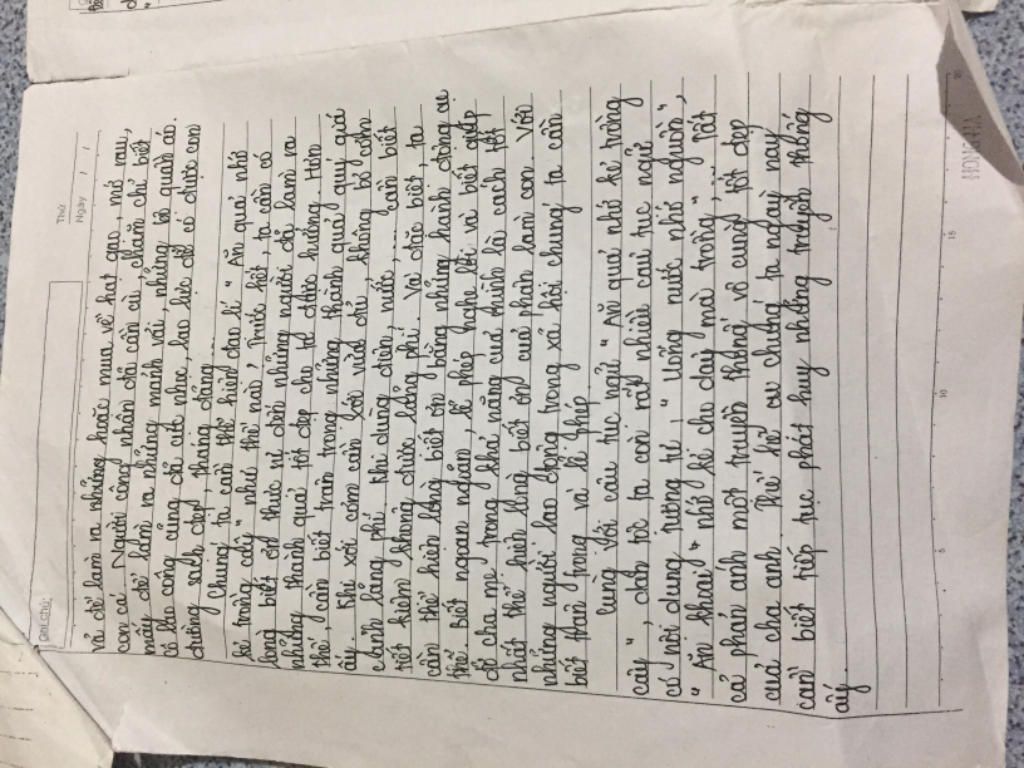 Thứ
Ngày / /
Ghi chú:
vả để làm ra những hoặc mua về hạt gạo, mớ rau,
con cá. Người công nhân đã cần cù, chăm chỉ biết
mấy để làm ra những mảnh vải, những bộ quần áo.
Cô lao công cũng đã cực nhọc, lao lực để có được con
đường sạch đẹp, thẳng đãng...
Chúng ta cần thể hiện đạo lí " Ăn quả nhớ
kẻ trồng cây" như thế nào, Trước hết, ta cần có
lòng biết ơn thức nỉ đến những người đã làm ra
những thành quả tốt đẹp cho ta được hưởng. Hơn
thế, cần biết trân trọng những thành quả quý giá
ấy. Khi xới cơm cần xới vừa đủ, không bỏ cơm
canh lãng phí. Khi dùng điện, nước,... cần biết
tiết kiệm không được lãng phí. Và đặc biệt, ta
cần thể hiện lòng biết ơn bằng những hành động cụ
thể: biết ngoan ngoãn, lễ phép nghe lời và biết giúp
đỡ cha mẹ trong khả năng của mình là cách tốt
nhất thể hiện lòng biết ơn của phận làm con. Với
những người lao động trong xã hội chúng ta cần
biết trân trọng và lễ ghép.
Cùng với câu tục ngữ " Ăn quả nhớ kẻ trồng
cây", dân tộc ta còn rất nhiều câu tục ngữ
có nội dung tương tự: " Uống nước nhớ nguồn",
" Ăn khoai" nhớ kẻ cho dây mà trồng",... Tất
cả phản ánh một truyền thống vô cùng tốt đẹp
của cha anh. Thế hệ cu chúng ta ngày nay
cần biết tiếp tục phát huy những truyền thống
ấy.
5
10
15
20
HONG HA